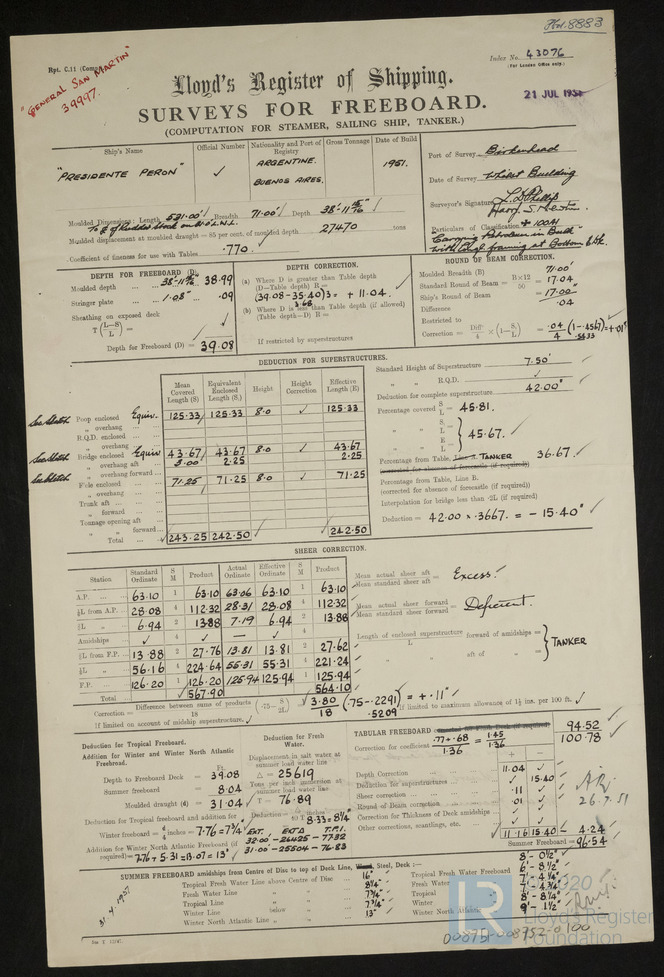 Hol. 8883
Rpt. C.11 (Comp.)
Index No. 43076
(For London Office only.)
"GENERAL SAN MARTIN"
39997.
Lloyd's Register of Shipping.
21 JUL 1951
SURVEYS FOR FREEBOARD.
(COMPUTATION FOR STEAMER, SAILING SHIP, TANKER.)
Ship's Name Official Number Nationality and Port of Registry Gross Tonnage Date of Build
"PRESIDENTE PERON" ✓ ARGENTINE. BUENOS AIRES. 1951.
Port of Survey Birkenhead
Date of Survey Whilst Building
Surveyor's Signature
Particulars of Classification + 100A1
Carrying Petroleum in Bulk
Moulded Dimensions: Length 531.00' Breadth 71.00' Depth 38'-11 15/16"
Moulded displacement at moulded draught = 85 per cent. of moulded depth 27470 tons
Coefficient of fineness for use with Tables .770
DEPTH FOR FREEBOARD (D).
Moulded depth 38.99
Stringer plate 1.08" .09
Sheathing on exposed deck
T (L-S/L)
Depth for Freeboard (D) = 39.08
DEPTH CORRECTION.
(a) Where D is greater than Table depth
(D—Table depth) R =
(39.08-35.40)3 = + 11.04.
3.68
(b) Where D is less than Table depth (if allowed)
(Table depth—D) R =
If restricted by superstructures
ROUND OF BEAM CORRECTION.
Moulded Breadth (B) 71.00'
Standard Round of Beam = B×12/50 = 17.04
Ship's Round of Beam = 17.00"
Difference .04
Restricted to
Correction = Diff/4 × (1-S/L) = .04/4 (1-.4567) = +.01"
.5433
DEDUCTION FOR SUPERSTRUCTURES.
Mean Covered Length (S) Equivalent Enclosed Length (S₁) Height Height Correction Effective Length (E)
See Sketch Poop enclosed Equiv. 125.33 125.33 8.0 125.33
" overhang
R.Q.D. enclosed
" overhang
See Sketch Bridge enclosed Equiv 43.67 43.67 8.0 ✓ 43.67
" overhang aft 3.00 2.25 2.25
" overhang forward
See Sketch F'cle enclosed 71.25 71.25 8.0 ✓ 71.25
" overhang
Trunk aft
" forward
Tonnage opening aft
" " forward
Total 243.25 242.50 242.50
Standard Height of Superstructure 7.50'
" " R.Q.D. ✓
Deduction for complete superstructure 42.00"
Percentage covered S/L = 45.81.
" " S₁/L = 
" " E/L = 45.67.
Percentage from Table, Line A. TANKER 36.67.
(corrected for absence of forecastle (if required))
Percentage from Table, Line B.
(corrected for absence of forecastle (if required))
Interpolation for bridge less than .2L (if required)
Deduction = 42.00 × .3667. = - 15.40"
SHEER CORRECTION.
Station Standard Ordinate S M Product Actual Ordinate Effective Ordinate S M Product
A.P. 63.10 1 63.10 63.06 63.10 1 63.10
⅙L from A.P. 28.08 4 112.32 28.31 28.08 4 112.32
⅓L " 6.94 2 13.88 7.19 6.94 2 13.88
Amidships ✓ 4 ✓ — ✓ 4
⅓L from F.P. 13.88 2 27.76 13.81 13.81 2 27.62
⅙L " 56.16 4 224.64 55.31 55.31 4 221.24
F.P. 126.20 1 126.20 125.94 125.94 1 125.94
Total 567.90 564.10
Mean actual sheer aft
Mean standard sheer aft = Excess.
Mean actual sheer forward
Mean standard sheer forward = Deficient.
Length of enclosed superstructure forward of amidships = 
L
" aft of " = TANKER
Correction = Difference between sums of products/18 (.75-S/2L) = 3.80/18 (.75-.2291) = + .11"
.5209
If limited on account of midship superstructure.
If limited to maximum allowance of 1½ ins. per 100 ft.
Deduction for Tropical Freeboard.
Addition for Winter and Winter North Atlantic Freeboard.
Ft.
Depth to Freeboard Deck = 39.08
Summer freeboard = 8.04
Moulded draught (d) = 31.04
Deduction for Tropical freeboard and addition for
Winter freeboard = d/4 inches = 7.76 = 7¾"
Addition for Winter North Atlantic Freeboard (if required) = 7.76 + 5.31 = 13.07 = 13"
Deduction for Fresh Water.
Displacement in salt water at summer load water line
Δ = 25619
Tons per inch immersion at summer load water line
T = 76.89
Deduction = Δ/40 T inches = 8.33 = 8¼"
EXT. EXT Δ T.P.I.
32.00 - 26425 - 77.32
31.00 - 25504 - 76.83
TABULAR FREEBOARD 94.52
Correction for coefficient .77+.68/1.36 = 1.45/1.36 100.78
+ -
Depth Correction 11.04 ✓
Deduction for superstructures ✓ 15.40
Sheer correction .11 ✓
Round of Beam correction .01 ✓
Correction for Thickness of Deck amidships
Other corrections, scantlings, etc.
11.16 15.40 - 4.24
Summer Freeboard = 96.54
26.7.51
SUMMER FREEBOARD amidships from Centre of Disc to top of Deck Line, Wood, Steel, Deck:— 8'- 0½"
Tropical Fresh Water Line above Centre of Disc 16" Tropical Fresh Water Freeboard 6'- 8½"
Fresh Water Line " " 8¼" Fresh Water " 7'- 4¼"
Tropical Line " " 7¾" Tropical " 7'- 4¾"
Winter Line below " 7¾" Winter " 8'- 8¼"
Winter North Atlantic Line " " 13" Winter North Atlantic " 9'- 1½"
LR
© 2020
Lloyd's Register
Foundation
008751-008752-0100